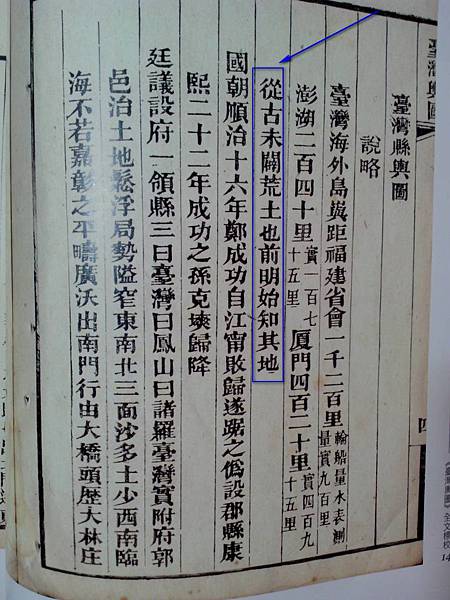 臺灣輿圖
四
臺灣縣輿圖
說略
臺灣海外島嶼距福建省會一千二百里輪船量水表測量實九百里
澎湖二百四十里實一百七十五里厦門四百二十里實四百九十五里
從古未闢荒土也前明始知其地
國朝順治十六年鄭成功自江甯敗歸遂踞之僞設郡縣康
熙二十二年成功之孫克塽歸降
廷議設府一領縣三曰臺灣曰鳳山曰諸羅臺灣實附府郭
邑治土地鬆浮局勢隘窄東南北三面沙多土少西南臨
海不若嘉彰之平疇廣沃出南門行由大橋頭歷大林庄